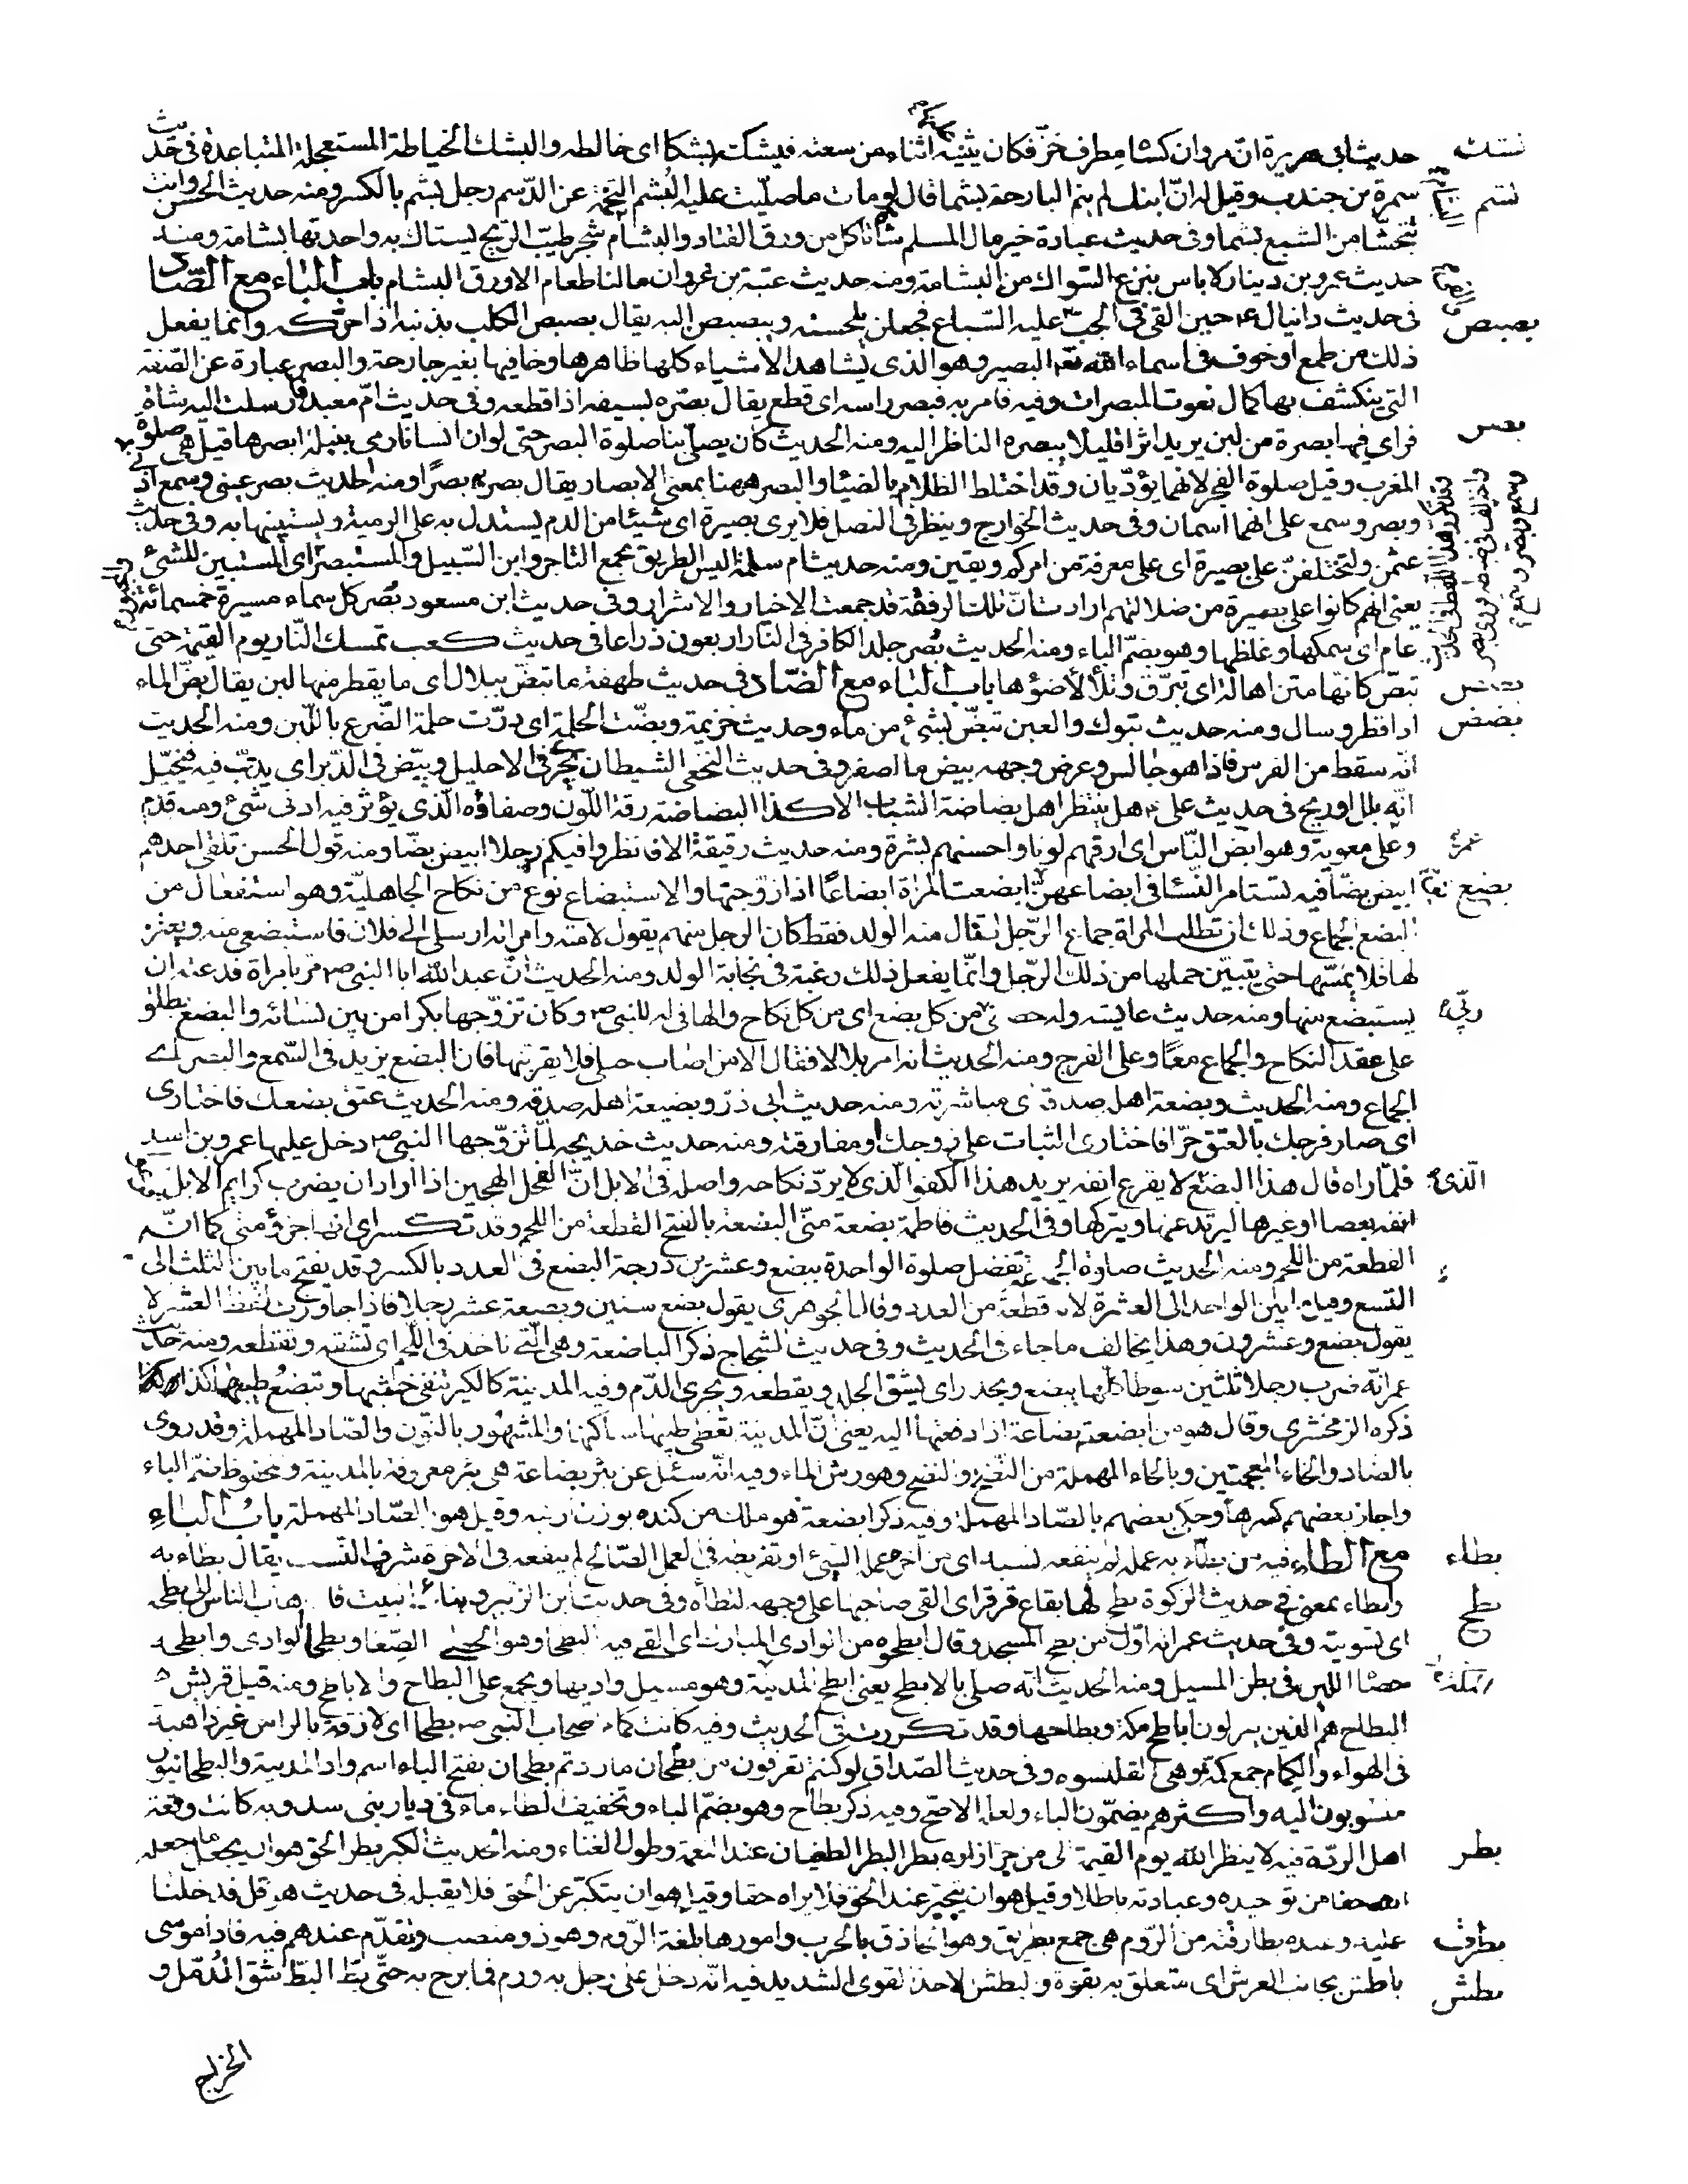 حديث ابى هريرة انّ مروان كساه مطرف خزّ فكان يثنيه اثناء من سعته فبشكت بشكا اى خاطه والبشك الخياطة المستعجلة المتباعدة فى حديث
سمرة بن جندب وقيل له انّ ابنك لم ينم البارحة بشما قال لو مات ما صلّيت عليه البشم التخمة عن الدّسم رجل بشم بالكسر ومنه حديث الحسن وانت
تتجشّا من الشبع بشما وفى حديث عبادة خير مال المسلم شاة تاكل من ورق القتاد والبشام شجر طيّب الريح يستاك به واحدتها بشامة ومنه
حديث عمرو بن دينار لا باس بنزع السّواك من البشامة ومنه حديث عتبة بن غزوان ما لنا طعام الا ورق البشام باب الباء مع الصّاد
فى حديث دانيال ع حين القى فى الجب عليه السّباع فجعلن يلحسنه ويبصبصن اليه يقال بصبص الكلب بذنبه اذا حرّكه وانما يفعل
ذلك من طمع او خوف فى اسماء الله تعه البصير وهو الذى يشاهد الاشياء كلها ظاهرها وخافيها بغير جارحة والبصر عبارة عن الصّفة
التى ينكشف بها كمال نعوت المبصرات وفيه فامر به فبصر راسه اى قطع يقال بصّره بسيفه اذا قطعه وفى حديث امّ معبد فارسلت اليه شاة
فراى فيها بصرة من لبن يريد اثرا قليلا يبصره الناظر اليه ومنه الحديث كان يصلّى بنا صلوة البصر حتى لو ان انسانا رمى بنبلة ابصرها قيل هى صلوة
المغرب وقيل صلوة الفجر لانهما يؤدّيان وقد اختلط الظلام بالضياء والبصر ههنا بمعنى الابصار يقال بصر به بصرًا ومنه الحديث بصر عينى وسمع اذنى
وبصر وسمع على انهما اسمان وفى حديث الخوارج وينظر فى النصل فلا يرى بصيرة اى شيئا من الدم يستدل به على الرمية ويستبينها به وفى حديث
عثمن ولتختلفنّ على بصيرة اى على معرفة من امركم ويقين ومنه حديث ام سلمة اليس الطريق يجمع التاجر وابن السّبيل والمستبصر اى المستبين للشئ
يعنى انهم كانوا على بصيرة من ضلالتهم ارادت انّ تلك الرفقة قد جمعت الاخيار والاشرار وفى حديث ابن مسعود بُصر كل سماء مسيرة خمسمائة
عام اى سمكها وغلظها وهو بضمّ الباء ومنه الحديث بُصر جلد الكافر فى النار اربعون ذراعا فى حديث كعب تمسك النّار يوم القيمة حتى
تبصّ كانها متن اهالة اى تبرق وتلألأ ضؤها باب الباء مع الضّاد فى حديث طهفة ما تبضّ ببلال اى ما يقطر منها لبن يقال بضّ الماء
اذا قطر وسال ومنه حديث تبوك والعين تبضّ بشئ من ماء وحديث خزيمة وبضّت الحلمة اى درّت حلمة الضّرع باللّبن ومنه الحديث
انّه سقط من الفرس فاذا هو جالس وعرض وجهه يبضّ ما اصفر وفى حديث النخعى الشيطان يجرى فى الاحليل ويبضّ فى الدّبر اى يدبّ فيه فيخيّل
انّه بلل او ريح فى حديث على ع هل ينتظر اهل بضاضة الشباب الا كذا البضاضة رقة اللّون وصفاؤه الّذى يؤثر فيه ادنى شئ ومنه قدم
وعلى معوية وهو ابضّ النّاس اى ارقهم لونا واحسنهم بشرة ومنه حديث رقيقة الا فانظروا فيكم رجلا ابيض بضّا ومنه قول الحسن تلقى احدهم
ابيض بضّا فيه تستامر النّسا فى ابضاعهنّ ابضعت المراة ابضاعًا اذا زوّجتها والاستبضاع نوع من نكاح الجاهليّة وهو استفعال من
البضع الجماع وذلك ان تطلب المراة جماع الرّجل لتنال منه الولد فقط كان الرجل منهم يقول لامته وامراته ارسلى الى فلان فاستبضعى منه ويعتز
لها فلا يمسّها حتى يتبيّن حملها من ذلك الرّجل وانّما يفعل ذلك رغبة فى نجابة الولد ومنه الحديث انّ عبد الله ابا النبى ص مر بامراة فدعته ان
يستبضع منها ومنه حديث عايشه وله حصنى من كل بضع اى من كل نكاح والها فى له للنبى ص وكان تزوّجها بكرا من بين نسائه والبضع يطلق
على عقد النكاح والجماع معًا وعلى الفرج ومنه الحديث انه امر بلالا فقال الا من اصاب حبلى فلا يقربنّها فان البضع يزيد فى السّمع والبصر اى
الجماع ومنه الحديث وبضعة اهله صدقة اى مباشرته ومنه حديث ابى ذر وبضيعة اهله صدقه ومنه الحديث عتق بضعك فاختارى
اى صار فرجك بالعتق حرّا فاختارى الثبات على زوجك او مفارقته ومنه حديث خديجه لمّا تزوّجها النبى ص دخل عليها عمرو بن اسد
فلمّا راه قال هذا البضع لا يقرع انفه يريد هذا الكفو الّذى لا يردّ نكاحه واصله فى الابل انّ الفحل الهجين اذا اراد ان يضرب كرايم الابل
انفه بعصا او غيرها ليرتد عنها ويتركها وفى الحديث فاطمة بضعة منّى البضعة بالفتح القطعة من اللحم وقد تكسر اى انها جزؤ منّى كما انّه
القطعة من اللحم ومنه الحديث صلوة الجماعة تفضل صلوة الواحدة ببضع وعشرين درجة البضع فى العدد بالكسر وقد يفتح ما بين الثلث الى
التسع وقيل ما بين الواحد الى العشرة لانه قطعة من العدد وقال الجوهرى يقول بضع سنين وبضعة عشر رجلا فاذا جاوزت لفظ العشر لا
يقول بضع وعشرون وهذا يخالف ما جاء فى الحديث وفى حديث الشجاج ذكر الباضعة وهى الّتى تاخذ فى اللّحم اى تشقه وتقطعه ومنه حديث
عمر انّه ضرب رجلا ثلثين سوطا كلها يبضع ويحدر اى يشق الجلد ويقطعه ويجرى الدّم وفيه المدينة كالكير تنفى خبثها وتبضع طيبها كذا
ذكره الزمخشرى وقال هو من ابضعته بضاعة اذا دفعتها اليه يعنى انّ المدينة تعطى طيبها ساكنها والمشهور بالنّون والصّاد المهملة وقد روى
بالضاد والخاء المعجمتين وبالحاء المهملة من النّضخ والنضح وهو رش الماء وفيه انّه سئل عن بئر بضاعة هى بئر معروفة بالمدينة والمحفوظ ضمّ الباء
واجاز بعضهم كسرها وحكى بعضهم بالصّاد المهملة وفيه ذكر ابضعة هو ملك من كنده بوزن ارنبه وقيل هو بالصّاد المهملة باب الباء
مع الطاء فيه من بطّأ به عمله لم ينفعه نسبه اى من اخره عمله السّيئ او تفريطه فى العمل الصّالح لم ينفعه فى الآخرة شرف النّسب يقال بطاء به
وابطاء بمعنى فى حديث الزكوة بطح لها بقاع قرقر اى القى صاحبها على وجهه لتطأه وفى حديث ابن الزبير وبناء البيت فا هاب الناس الى بطحه
اى تسويته وفى حديث عمر انه اوّل من بطح المسجد وقال ابطحوه من الوادى المبارك اى القى فيه البطحا وهو الحصى الصّغار وبطحا الوادى وابطحه
حصاه اللين فى بطن المسيل ومنه الحديث انّه صلى بالابطح يعنى ابطح المدينة وهو مسيل واديها ويجمع على البطاح والاباطح ومنه قيل قريش
البطاح هم الذين ينزلون اباطح مكة وبطاحها وقد تكررت فى الحديث وفيه كانت كمام اصحاب النبى ص بطحا اى لازقة بالراس غير ذاهبة
فى الهواء والكمام جمع كمّة وهى القلنسوه وفى حديث الصّداق لو كنتم تغرفون من بطحان ما زدتم بطحان بفتح الباء اسم واد المدينة والبطحانيون
منسوبون اليه واكثرهم يضمّون الباء ولعله الاصحّ وفيه ذكر بطاح وهو بضمّ الباء وتخفيف الطاء ماء فى ديار بنى اسد وبه كانت وقعة
اهل الردّة فيه لا ينظر الله يوم القيمة الى من جرّ ازاره بطرا البطر الطغيان عند النعمة وطول الغناء ومنه الحديث الكبر بطر الحق هو ان يجعل ما جعله
الله حقا من توحيده وعبادته باطلا وقيل هو ان يتجبّر عند الحق فلا يراه حقا وقيل هو ان يتكبّر عن الحق فلا يقبله فى حديث هرقل فدخلنا
عليه وعنده بطارقته من الرّوم هى جمع بطريق وهو الحاذق بالحرب وامورها بلغة الرّوم وهو ذو منصب وتقدّم عندهم فيه فاذا موسى
باطش بجانب العرش اى متعلق به بقوّة والبطش الاخذ القوى الشديد فيه انّه دخل على رجل به ورم فما برح به حتّى بطّ البطّ شق الدّمّل و
الخراج
بشم
بصبص
بصر
بضض
بضع
بطاء
بطح
بطر
بطرق
بطش